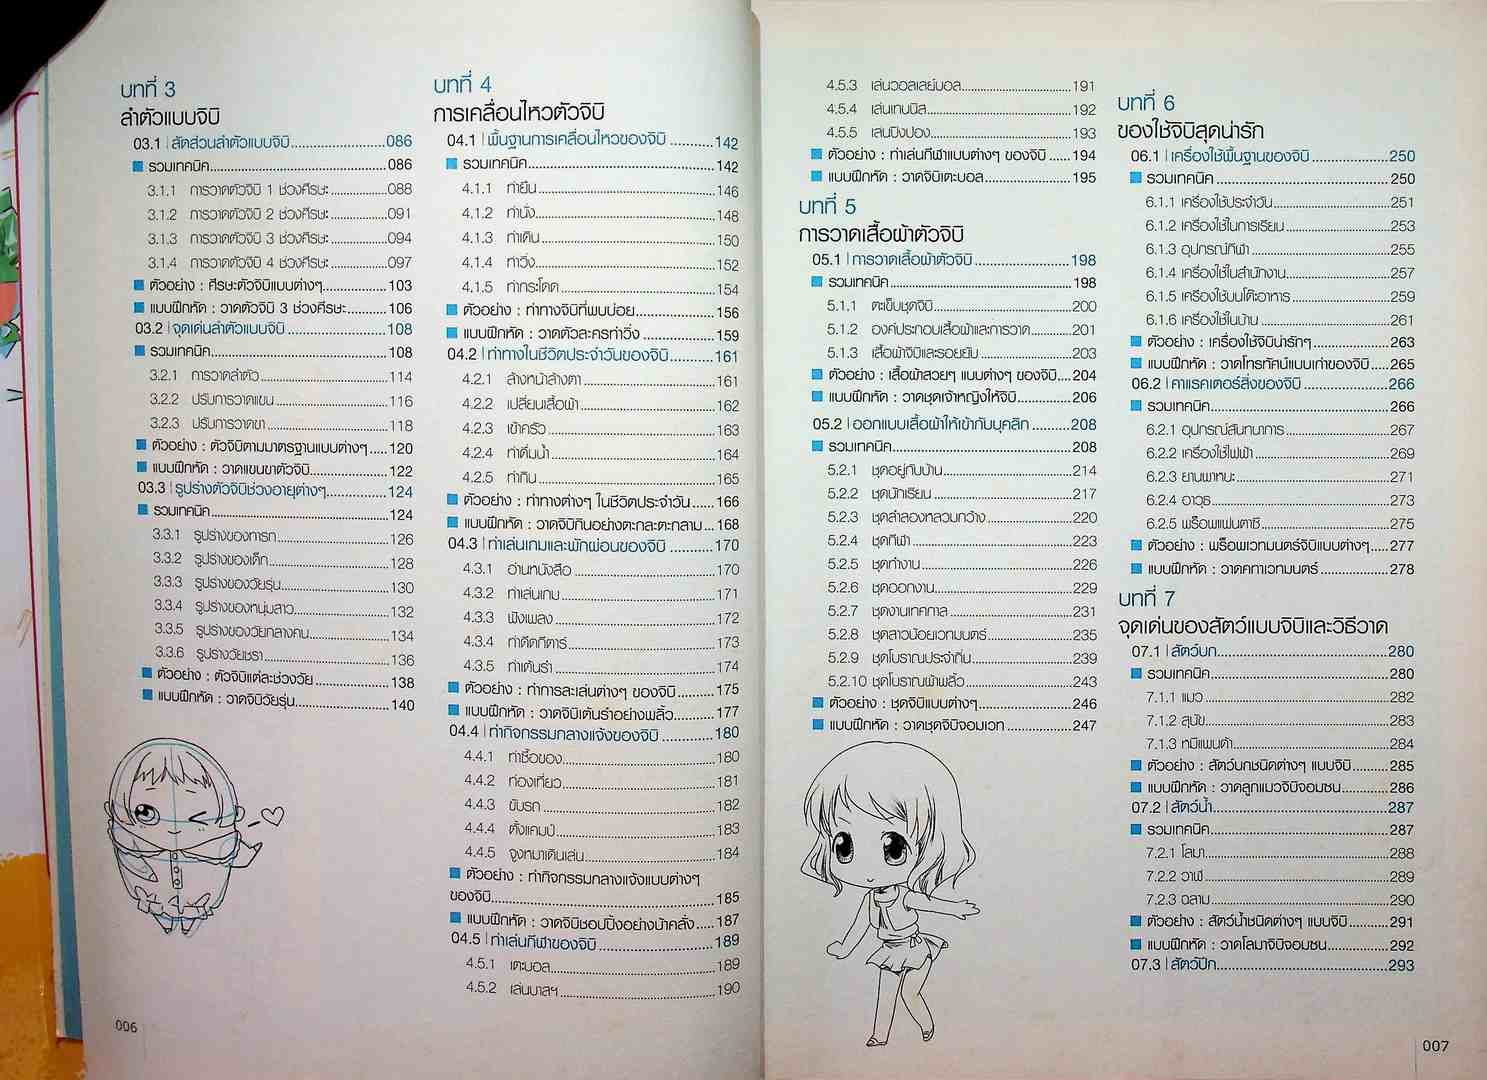 บทที่ 3
ลำตัวแบบจิบิ
03.1 | สัดส่วนลำตัวแบบจิบิ........................086
รวมเทคนิค............................................086
3.1.1 การวาดตัวจิบิ 1 ช่วงศีรษะ..............088
3.1.2 การวาดตัวจิบิ 2 ช่วงศีรษะ..............091
3.1.3 การวาดตัวจิบิ 3 ช่วงศีรษะ..............094
3.1.4 การวาดตัวจิบิ 4 ช่วงศีรษะ..............097
ตัวอย่าง : ศีรษะตัวจิบิแบบต่างๆ...............103
แบบฝึกหัด : วาดตัวจิบิ 3 ช่วงศีรษะ..........106
03.2 | จุดเด่นลำตัวแบบจิบิ........................108
รวมเทคนิค............................................108
3.2.1 การวาดลำตัว...............................114
3.2.2 ปรับการวาดแขน............................116
3.2.3 ปรับการวาดขา..............................118
ตัวอย่าง : ตัวจิบิตามมาตรฐานแบบต่างๆ.....120
แบบฝึกหัด : วาดแขนขาตัวจิบิ...................122
03.3 | รูปร่างตัวจิบิช่วงอายุต่างๆ....................124
รวมเทคนิค............................................124
3.3.1 รูปร่างของทารก............................126
3.3.2 รูปร่างของเด็ก..............................128
3.3.3 รูปร่างของวัยรุ่น............................130
3.3.4 รูปร่างของหนุ่มสาว.........................132
3.3.5 รูปร่างของวัยกลางคน......................134
3.3.6 รูปร่างวัยชรา................................136
ตัวอย่าง : ตัวจิบิแต่ละช่วงวัย...................138
แบบฝึกหัด : วาดจิบิวัยรุ่น........................140
006
บทที่ 4
การเคลื่อนไหวตัวจิบิ
04.1 | พื้นฐานการเคลื่อนไหวของจิบิ..........142
รวมเทคนิค............................................142
4.1.1 ท่ายืน.........................................146
4.1.2 ท่านั่ง.........................................148
4.1.3 ท่าเดิน........................................150
4.1.4 ท่าวิ่ง..........................................152
4.1.5 ท่ากระโดด...................................154
ตัวอย่าง : ท่าทางจิบิที่พบบ่อย..................156
แบบฝึกหัด : วาดตัวละครท่าวิ่ง.................159
04.2 | ท่าทางในชีวิตประจำวันของจิบิ..........161
4.2.1 ล้างหน้าล้างตา..............................161
4.2.2 เปลี่ยนเสื้อผ้า...............................162
4.2.3 เข้าครัว.......................................163
4.2.4 ท่าดื่มน้ำ......................................164
4.2.5 ท่ากิน.........................................165
ตัวอย่าง : ท่าทางต่างๆ ในชีวิตประจำวัน.....166
แบบฝึกหัด : วาดจิบิกินอย่างตะกละตะกลาม...168
04.3 | ท่าเล่นเกมและพักผ่อนของจิบิ..........170
4.3.1 อ่านหนังสือ..................................170
4.3.2 ท่าเล่นเกม...................................171
4.3.3 ฟังเพลง......................................172
4.3.4 ท่าดีดกีตาร์..................................173
4.3.5 ท่าเต้นรำ.....................................174
ตัวอย่าง : ท่าการละเล่นต่างๆ ของจิบิ........175
แบบฝึกหัด : วาดจิบิเต้นรำอย่างพลิ้ว..........177
04.4 | ท่ากิจกรรมกลางแจ้งของจิบิ............180
4.4.1 ท่าซื้อของ...................................180
4.4.2 ท่องเที่ยว....................................181
4.4.3 ขับรถ.........................................182
4.4.4 ตั้งแคมป์.....................................183
4.4.5 จูงหมาเดินเล่น..............................184
ตัวอย่าง : ท่ากิจกรรมกลางแจ้งแบบต่างๆ
ของจิบิ..................................................185
แบบฝึกหัด : วาดจิบิชอปปิ้งอย่างบ้าคลั่ง.....187
04.5 | ท่าเล่นกีฬาของจิบิ........................189
4.5.1 เตะบอล.......................................189
4.5.2 เล่นบาสฯ.....................................190
4.5.3 เล่นวอลเลย์บอล............................191
4.5.4 เล่นเทนนิส...................................192
4.5.5 เล่นปิงปอง...................................193
ตัวอย่าง : ท่าเล่นกีฬาแบบต่างๆ ของจิบิ......194
แบบฝึกหัด : วาดจิบิเตะบอล.....................195
บทที่ 5
การวาดเสื้อผ้าตัวจิบิ
05.1 | การวาดเสื้อผ้าตัวจิบิ......................198
รวมเทคนิค............................................198
5.1.1 ตะเข็บชุดจิบิ.................................200
5.1.2 องค์ประกอบเสื้อผ้าและการวาด..........201
5.1.3 เสื้อผ้าจิบิและรอยยับ......................203
ตัวอย่าง : เสื้อผ้าสวยๆ แบบต่างๆ ของจิบิ....204
แบบฝึกหัด : วาดชุดเจ้าหญิงให้จิบิ.............206
05.2 | ออกแบบเสื้อผ้าให้เข้ากับบุคลิก.........208
รวมเทคนิค............................................208
5.2.1 ชุดอยู่กับบ้าน................................214
5.2.2 ชุดนักเรียน...................................217
5.2.3 ชุดลำลองหลวมกว้าง.......................220
5.2.4 ชุดกีฬา.......................................223
5.2.5 ชุดทำงาน....................................226
5.2.6 ชุดออกงาน..................................229
5.2.7 ชุดงานเทศกาล..............................231
5.2.8 ชุดสาวน้อยเวทมนตร์......................235
5.2.9 ชุดโบราณประจำถิ่น.........................239
5.2.10 ชุดโบราณผ้าพลิ้ว.........................243
ตัวอย่าง : ชุดจิบิแบบต่างๆ......................246
แบบฝึกหัด : วาดชุดจิบิจอมเวท................247
บทที่ 6
ของใช้จิบิสุดน่ารัก
06.1 | เครื่องใช้พื้นฐานของจิบิ..................250
รวมเทคนิค............................................250
6.1.1 เครื่องใช้ประจำวัน..........................251
6.1.2 เครื่องใช้ในการเรียน.......................253
6.1.3 อุปกรณ์กีฬา.................................255
6.1.4 เครื่องใช้ในสำนักงาน......................257
6.1.5 เครื่องใช้บนโต๊ะอาหาร....................259
6.1.6 เครื่องใช้ในบ้าน............................261
ตัวอย่าง : เครื่องใช้จิบิน่ารักๆ..................263
แบบฝึกหัด : วาดโทรทัศน์แบบเก่าของจิบิ.....265
06.2 | คาแรคเตอร์สิ่งของจิบิ...................266
รวมเทคนิค............................................266
6.2.1 อุปกรณ์สันทนาการ........................267
6.2.2 เครื่องใช้ไฟฟ้า.............................269
6.2.3 ยานพาหนะ..................................271
6.2.4 อาวุธ..........................................273
6.2.5 พร็อพแฟนตาซี.............................275
ตัวอย่าง : พร็อพเวทมนตร์จิบิแบบต่างๆ.....277
แบบฝึกหัด : วาดคทาเวทมนตร์................278
บทที่ 7
จุดเด่นของสัตว์แบบจิบิและวิธีวาด
07.1 | สัตว์บก.......................................280
รวมเทคนิค............................................280
7.1.1 แมว...........................................282
7.1.2 สุนัข..........................................283
7.1.3 หมีแพนด้า...................................284
ตัวอย่าง : สัตว์บกชนิดต่างๆ แบบจิบิ.........285
แบบฝึกหัด : วาดลูกแมวจิบิจอมซน...........286
07.2 | สัตว์น้ำ.......................................287
รวมเทคนิค............................................287
7.2.1 โลมา..........................................288
7.2.2 วาฬ...........................................289
7.2.3 ฉลาม.........................................290
ตัวอย่าง : สัตว์น้ำชนิดต่างๆ แบบจิบิ..........291
แบบฝึกหัด : วาดโลมาจิบิจอมซน..............292
07.3 | สัตว์ปีก.......................................293
007